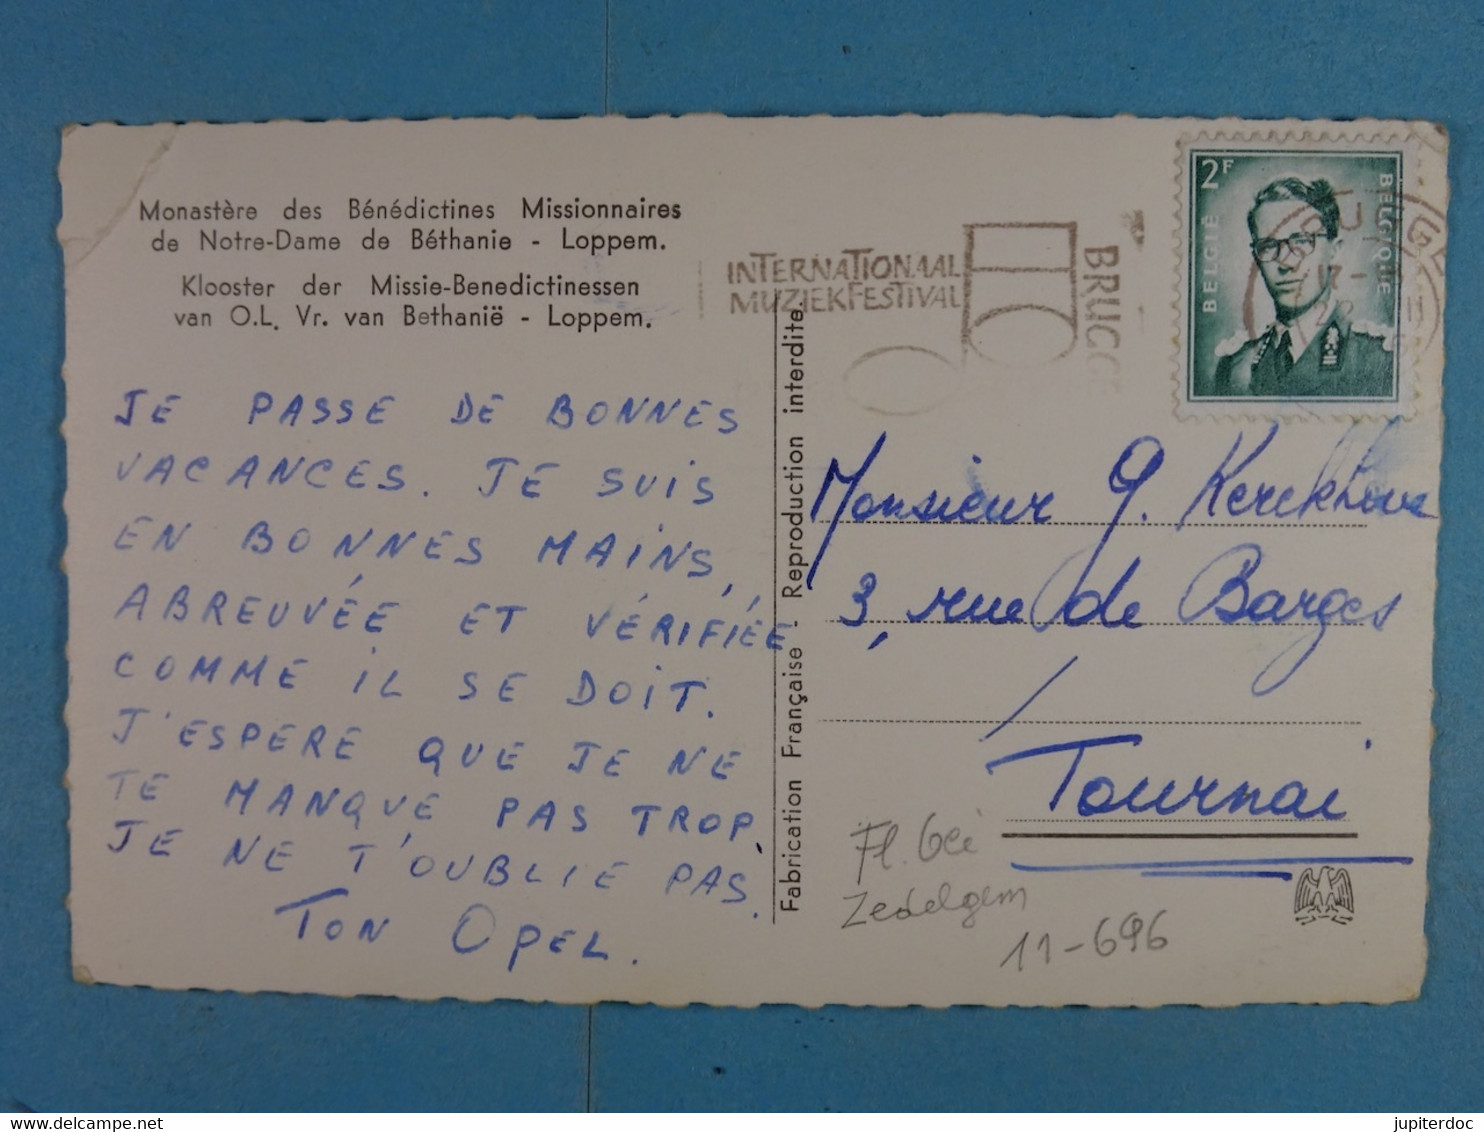 Monastère des Bénédictines Missionnaires
de Notre-Dame de Béthanie - Loppem.
Klooster der Missie-Benedictinessen
van O.L. Vr. van Bethanië - Loppem.
JE PASSE DE BONNES
VACANCES. JE SUIS
EN BONNES MAINS,
ABREUVÉE ET VÉRIFIÉE
COMME IL SE DOIT.
J'ESPERE QUE JE NE
TE MANQUE PAS TROP.
JE NE T'OUBLIE PAS.
TON OPEL.
Fabrication Française - Reproduction interdite.
INTERNATIONAAL
MUZIEKFESTIVAL
BRUGGE
2F
BELGIË
BELGIQUE
Monsieur G. Kerckhove
3, rue de Barges
Tournai
Zedelgem
11-696
jupiterdoc
delcampe.net